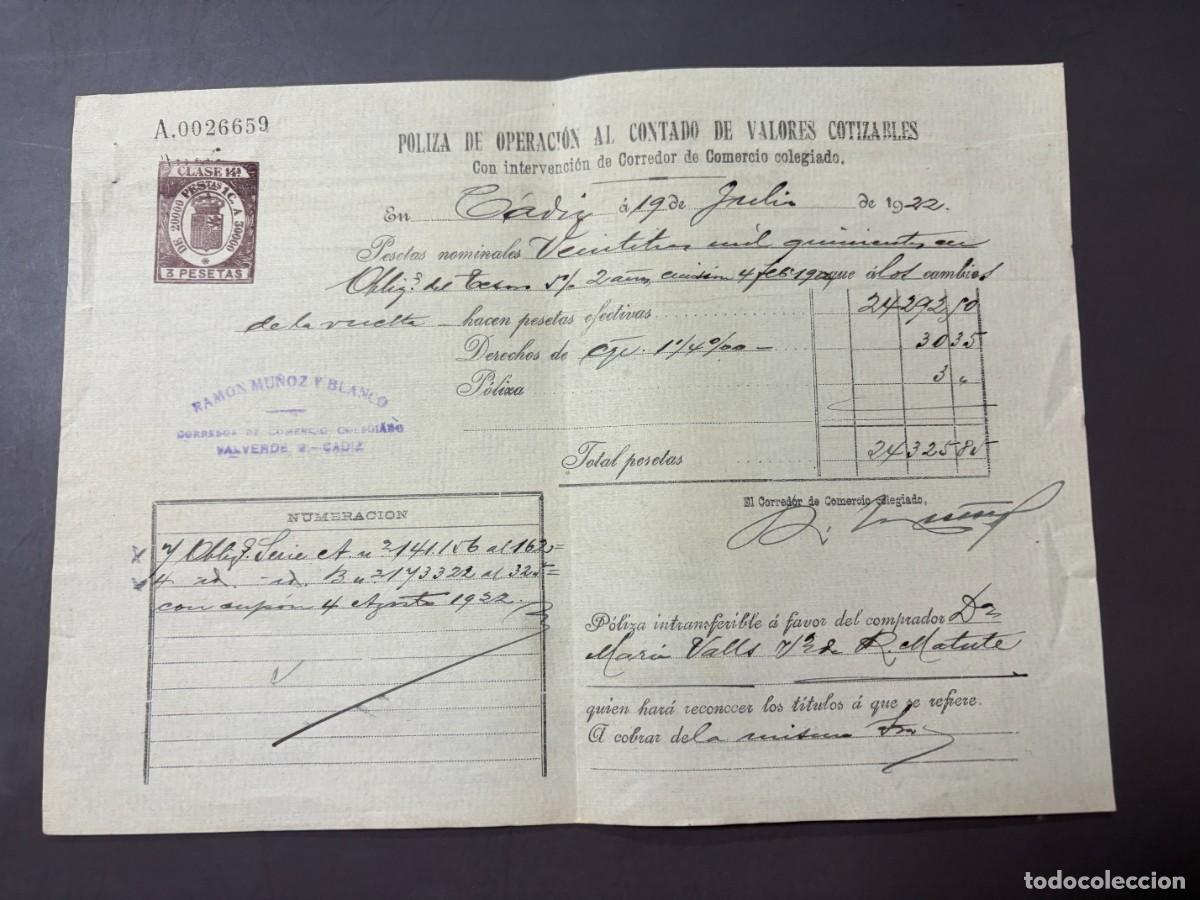 A.0026659
POLIZA DE OPERACIÓN AL CONTADO DE VALORES COTIZABLES
Con intervención de Corredor de Comercio colegiado.
CLASE 14ª
DE 20000 PESTAS 1 C. A 30000
3 PESETAS
En Cádiz á 19 de Julio de 1922
Pesetas nominales Veintitres mil quinientas en
Oblig.s del Tesoro 5% 2 años emisión 4 que á los cambios
de la vuelta hacen pesetas efectivas 24292 50
Derechos de 30 35
Póliza 3 "
Total pesetas 24325 85
RAMON MUÑOZ Y BLANCO
CORREDOR DE COMERCIO COLEGIADO
VALVERDE 2.-CADIZ
El Corredor de Comercio colegiado,
NUMERACION
7 Oblig.s Serie A. nº 141.156 al 162=
4 id. id. B nº 173322 al 325=
con cupón 4 Agosto 1922.
Póliza intransferible á favor del comprador Dª
Maria Valls de R. Matute
quien hará reconocer los títulos á que se refiere.
A cobrar de la misma
todocoleccion